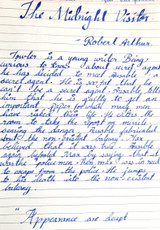 The Midnight Visitor
- Robert Arthur.
Fowler is a young writer. Being
curious to know about secret agent
he has decided to meet Ausable a
secret agent. He is very fat
can't be a secret agent. Ausable tells
him he is going to get an
important paper for which many men
have risked their life. He enters the
room to take the report by missile,
sensing the danger. Ausable fabricated
about the non-existent balcony. Max
believed that it was true. Ausable
again befooled Max by saying that
were the police men then Max was in rush
to escape from the police. He jumped
to his death into the non-existent
balcony.
"Appearance are decept